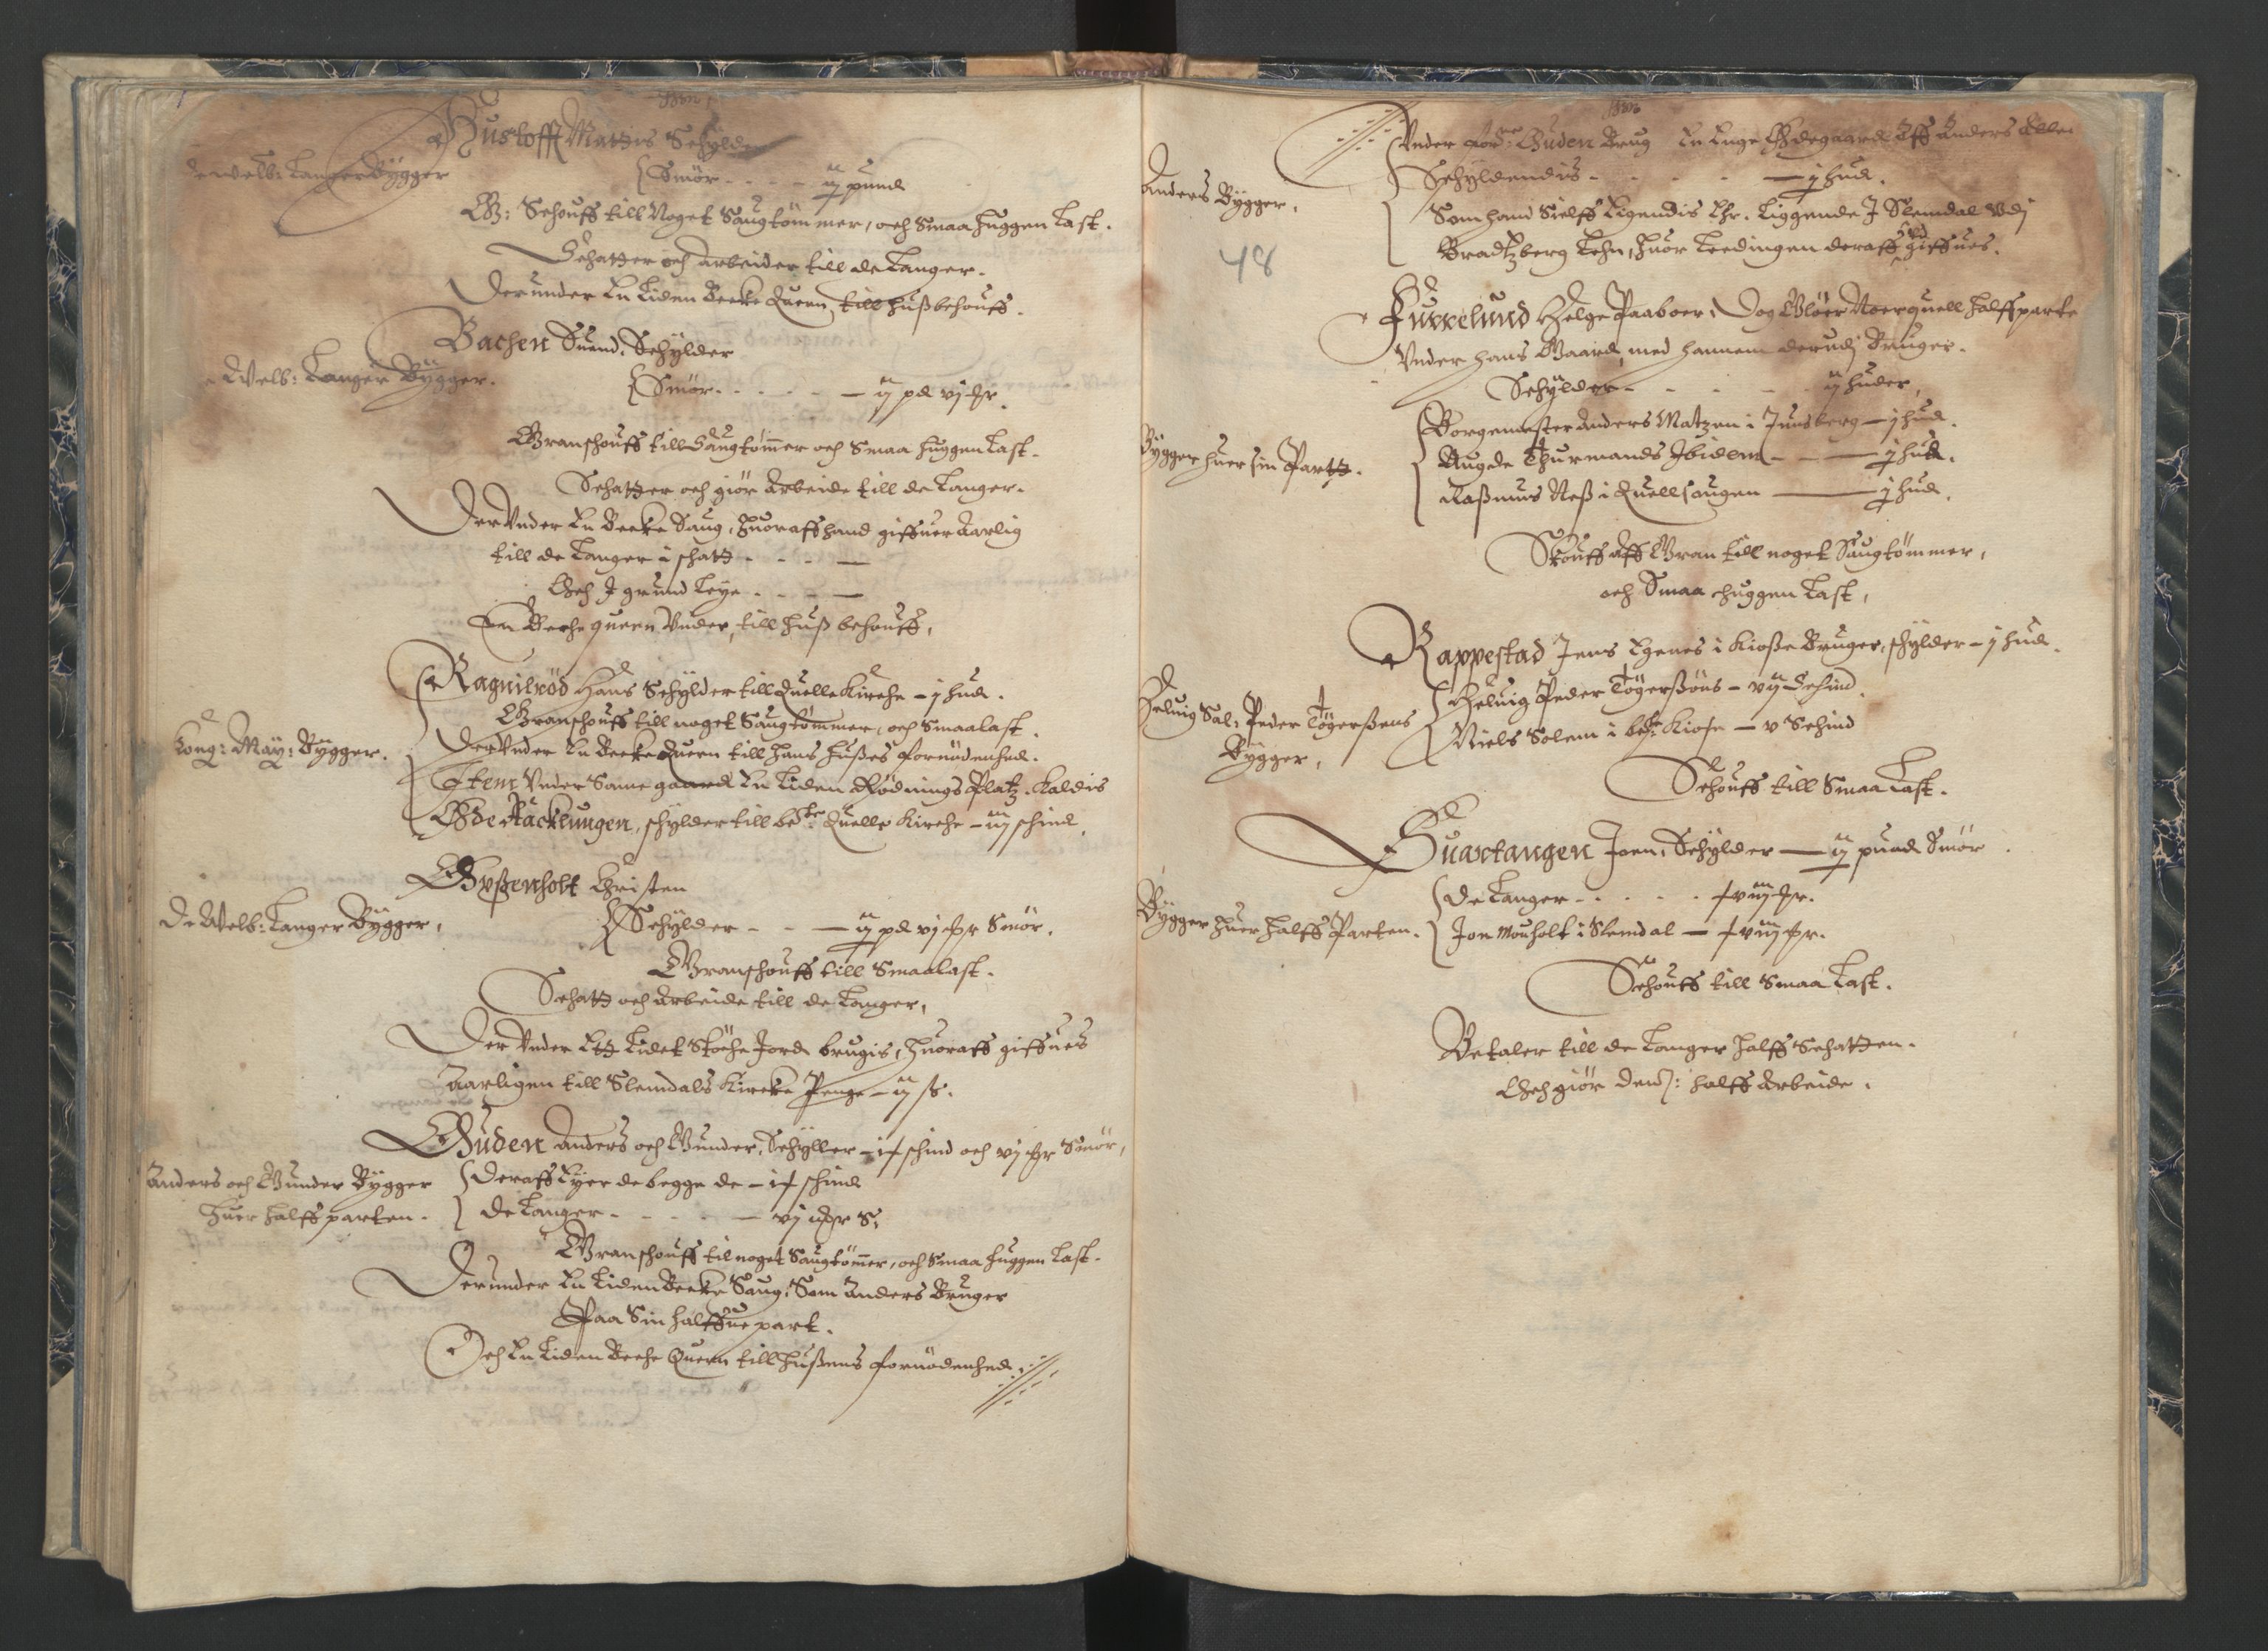 Huslofft Mattis Schylder
de welb: Langer Bÿgger
Smör - - - - ij pund
G: Schouff till Noget Saugtömmer, och Smaa huggen Last.
Schatter och arbeider till de Langer.
Derunder En Liden Becke Quern, till hußbehouff.
Bachen Suend, Schylder
Welb: Langer Bÿgger.
Smör - - - - ij pd vj
Granschouff till Saugtömer och Smaa huggen Last.
Schatter och giör Arbeide till de Langer.
Der Vnder En Becke Saug, huoraff hand giffuer Aarlig
till de Langer i schatt - - - -
Och J grund Leye - - - -
En Beche quern Vnder, till huß behouff,
Ragnilröd Hans Schylder till Quelle Kirche - j hud.
Granschouff till noget Saugtömmer, och Smaalast.
Kong: May: Bÿgger.
Der Vnder En Becke Quern till hans hußes fornödenhed.
Item Vnder Same gaard En Liden Rödnings Platz, Kaldis
Öde Racklungen, schylder till be:te Quelle Kirche - iij schind
Gyßenholt Christen
De Welb: Langer Bÿgger,
Schylder - - - ij pd vj Smör.
Granschouff till Smaalast.
Schatt och Arbeide till de Langer,
Der Vnder Ett Lidet Stöche Jord brugis, huoraff giffues
Aarligen till Slemdals Kircke Penge - ij ß.
Guden Anders och Gunder, Schyller - schind och vj Smör,
Anders och Gunder Bÿgger
Deraff Eyer de begge de - schind
huer halff parten.
De Langer - - - - vj S:
Granschouff til noget Saugtömer, och Smaa huggen Last.
Derunder En Liden Becke Saug, Som Anders Bruger
Paa Sin halffue part.
Och En Liden Beche Quern till hußens fornödenhed.
Vnder for:ne Guden Brug En Enge Ödegaard Aff Anders
Schyldendis - - - - j hud.
Anders Bÿgger.
48
Som hand Sielff Eigendis Er. Liggende J Slemdal Vdj
Bradtzberg Lehn, huor Leedingen deraff giffues.
Furrelund Helge Paaboer, Og Glöer Noerquell halffparte
Vnder hans Gaard, med hannem derudj Bruger.
Schylder - - - - iij huder,
Bÿgger huer sin Partt.
Borgemester Anders Matzen i Tunsberg - j hud.
Augde Thurmands Ibidem - - - j hud.
Raßmus Neß i Quellsougen - j hud.
Skouff aff Gran till noget Saugtömmer,
och Smaa huggen Last,
Rappestad Jens Egenes i Kiose Bruger, schylder - j hud.
Heluig Sal: Peder Tögerßens
Bÿgger,
Heluig Peder Tögerßöns - vij Schind
Niels Solem i be:te Kiose - v Schind
Schouff till Smaa Last.
Suartangen Joen, Schylder - ij pund Smör
Bÿgger huer halff Parten.
De Langer - - - -
Jon Mouholt i Slemdal -
Schouff till Smaa Last.
Betaler till de Langer halff Schatten.
Och giör dem: halff Arbeide.